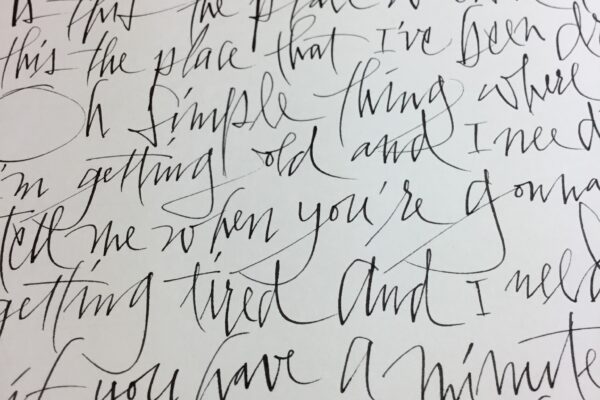 is this the place
this the place that I've been dr
Oh simple thing where
I'm getting old and I need
tell me when you're gonna
getting tired and I need
if you have a minute